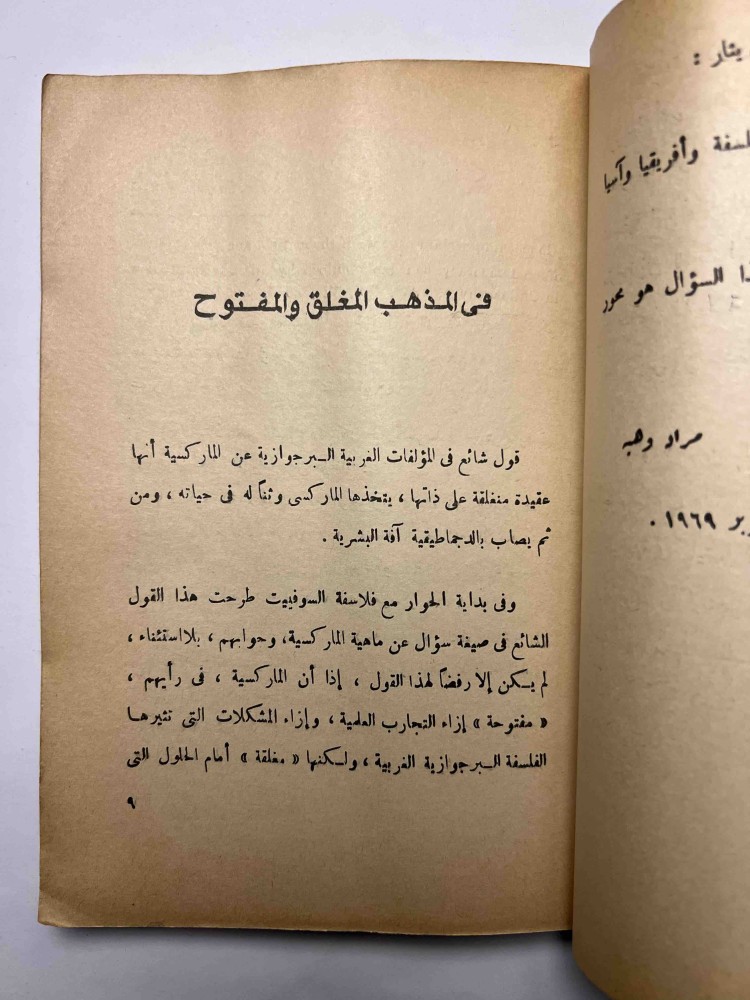 يثار :
وأفريقيا وآسيا
السؤال هو محور
مراد وهبه
١٩٦٩ .
فى المذهب المغلق والمفتوح
قول شائع فى المؤلفات الغربية البرجوازية عن الماركسية أنها
عقيدة منغلقة على ذاتها ، يتخذها الماركسى وثناً له فى حياته ، ومن
ثم يصاب بالدجماطيقية آفة البشرية .
وفى بداية الحوار مع فلاسفة السوفييت طرحت هذا القول
الشائع فى صيغة سؤال عن ماهية الماركسية، وحوابهم ، بلا استثناء ،
لم يكن إلا رفضاً لهذا القول ، إذا أن الماركسية ، فى رأيهم ،
« مفتوحة » إزاء التجارب العلمية ، وإزاء المشكلات التى تثيرها
الفلسفة البرجوازية الغربية ، ولكنها « مغلقة » أمام الحلول التى
٩